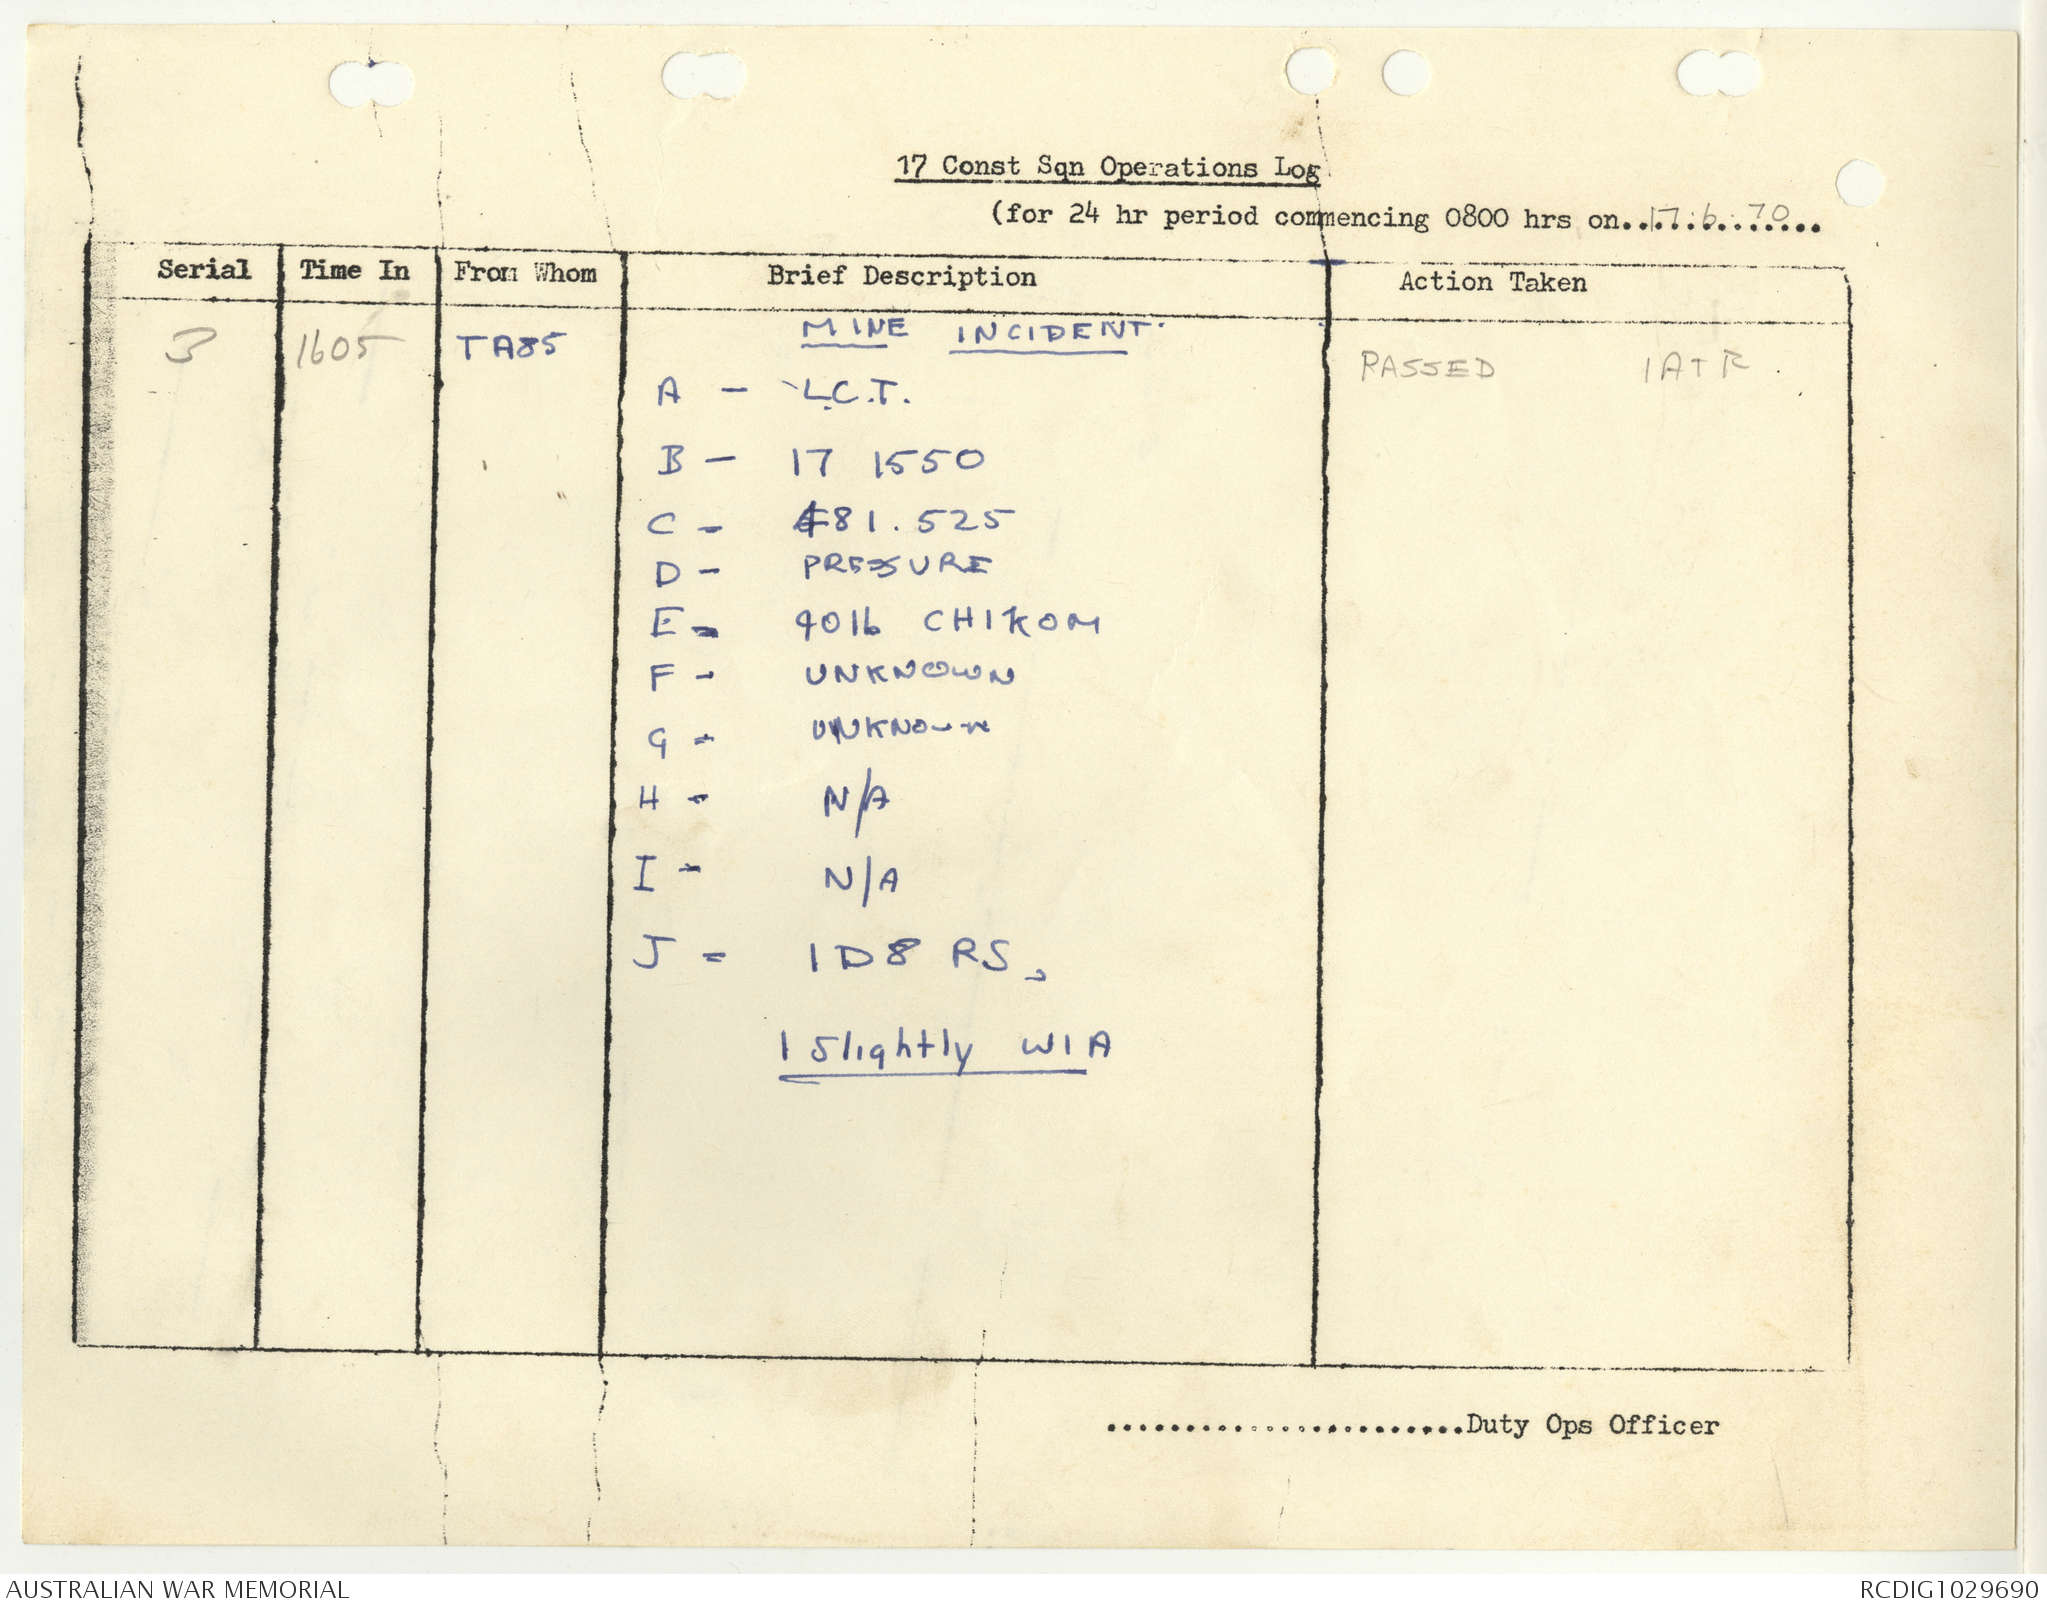 17 Const Sqn Operations Log
(for 24 hr period commencing 0800 hrs on..17.6.70...
Serial Time In From Whom Brief Description Action Taken
3 1605 TA85 MINE INCIDENT. PASSED 1ATR
A - L.C.T.
B - 17 1550
C - 481.525
D - PRESSURE
E - 40lb CHIKOM
F - UNKNOWN
G - UNKNOWN
H - N/A
I - N/A
J - 1 D8 RS,
1 Slightly WIA
.......................Duty Ops Officer
AUSTRALIAN WAR MEMORIAL RCDIG1029690